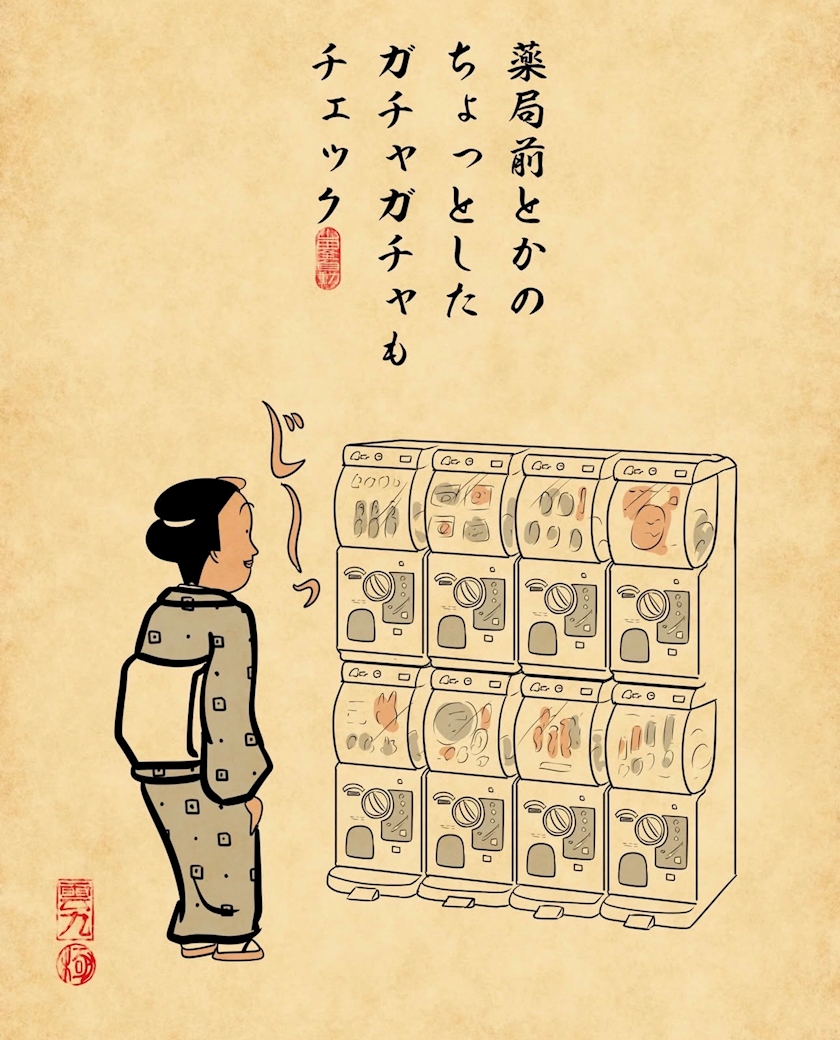 薬局前とかの
ちょっとした
ガチャガチャも
チェック
じーっ
雲九